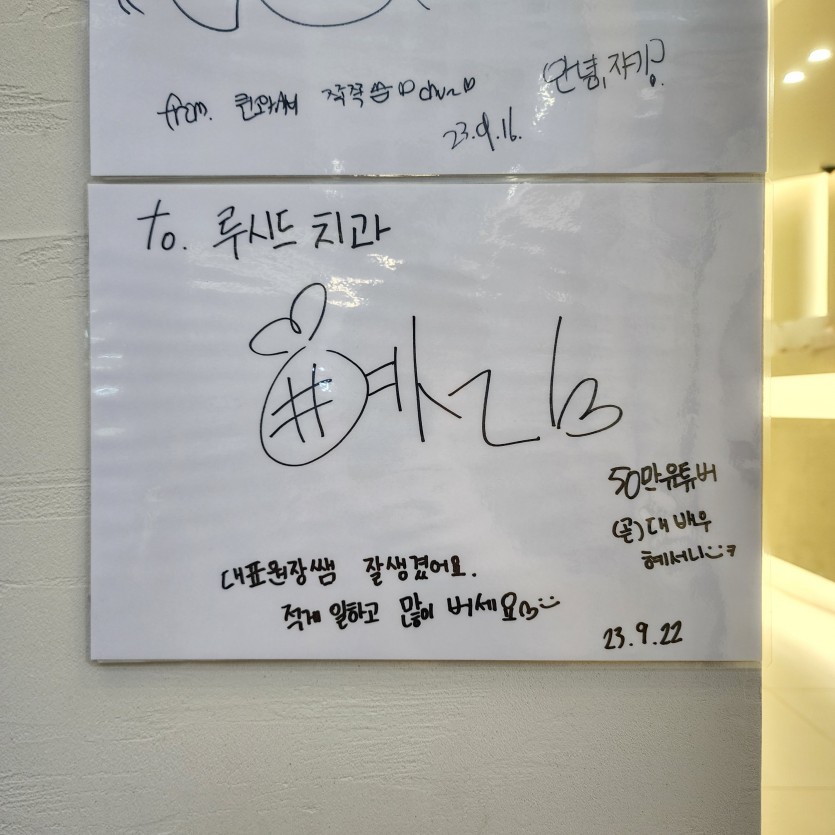 안녕, 쟈기?
from. 퀸와사비 쪽쪽쓉♡chu~♡
23.9.16.
to. 루시드 치과
50만유튜버
(곧)대배우
혜서니
대표원장쌤 잘생겼어요.
적게 일하고 많이 버세요
23.9.22